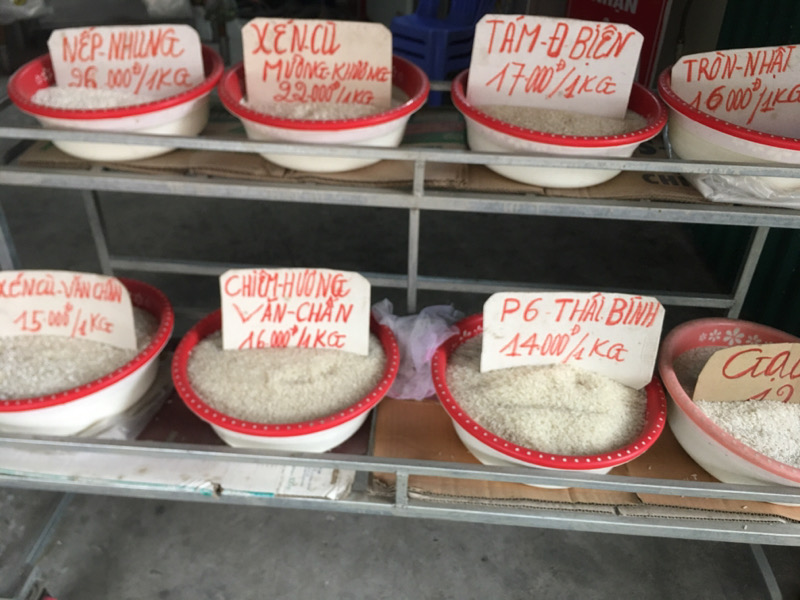 NẾP-NHUNG
26 000đ/1KG
XÉN CŨ
MƯỜNG-KHƯƠNG
22.000đ/1KG
TÁM-Đ.BIÊN
17.000đ/1KG
TRÒN-NHẬT
16000đ/1KG
XÉN CŨ-VĂN CHẤN
15.000đ/1KG
CHIÊM-HƯƠNG
VĂN-CHẤN
16.000đ/1KG
P6-THÁI BÌNH
14.000đ/1KG